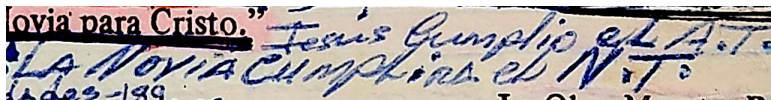 ovia para Cristo.” Jesús Cumplio el A.T.
LA Novia Cumplira el N.T.